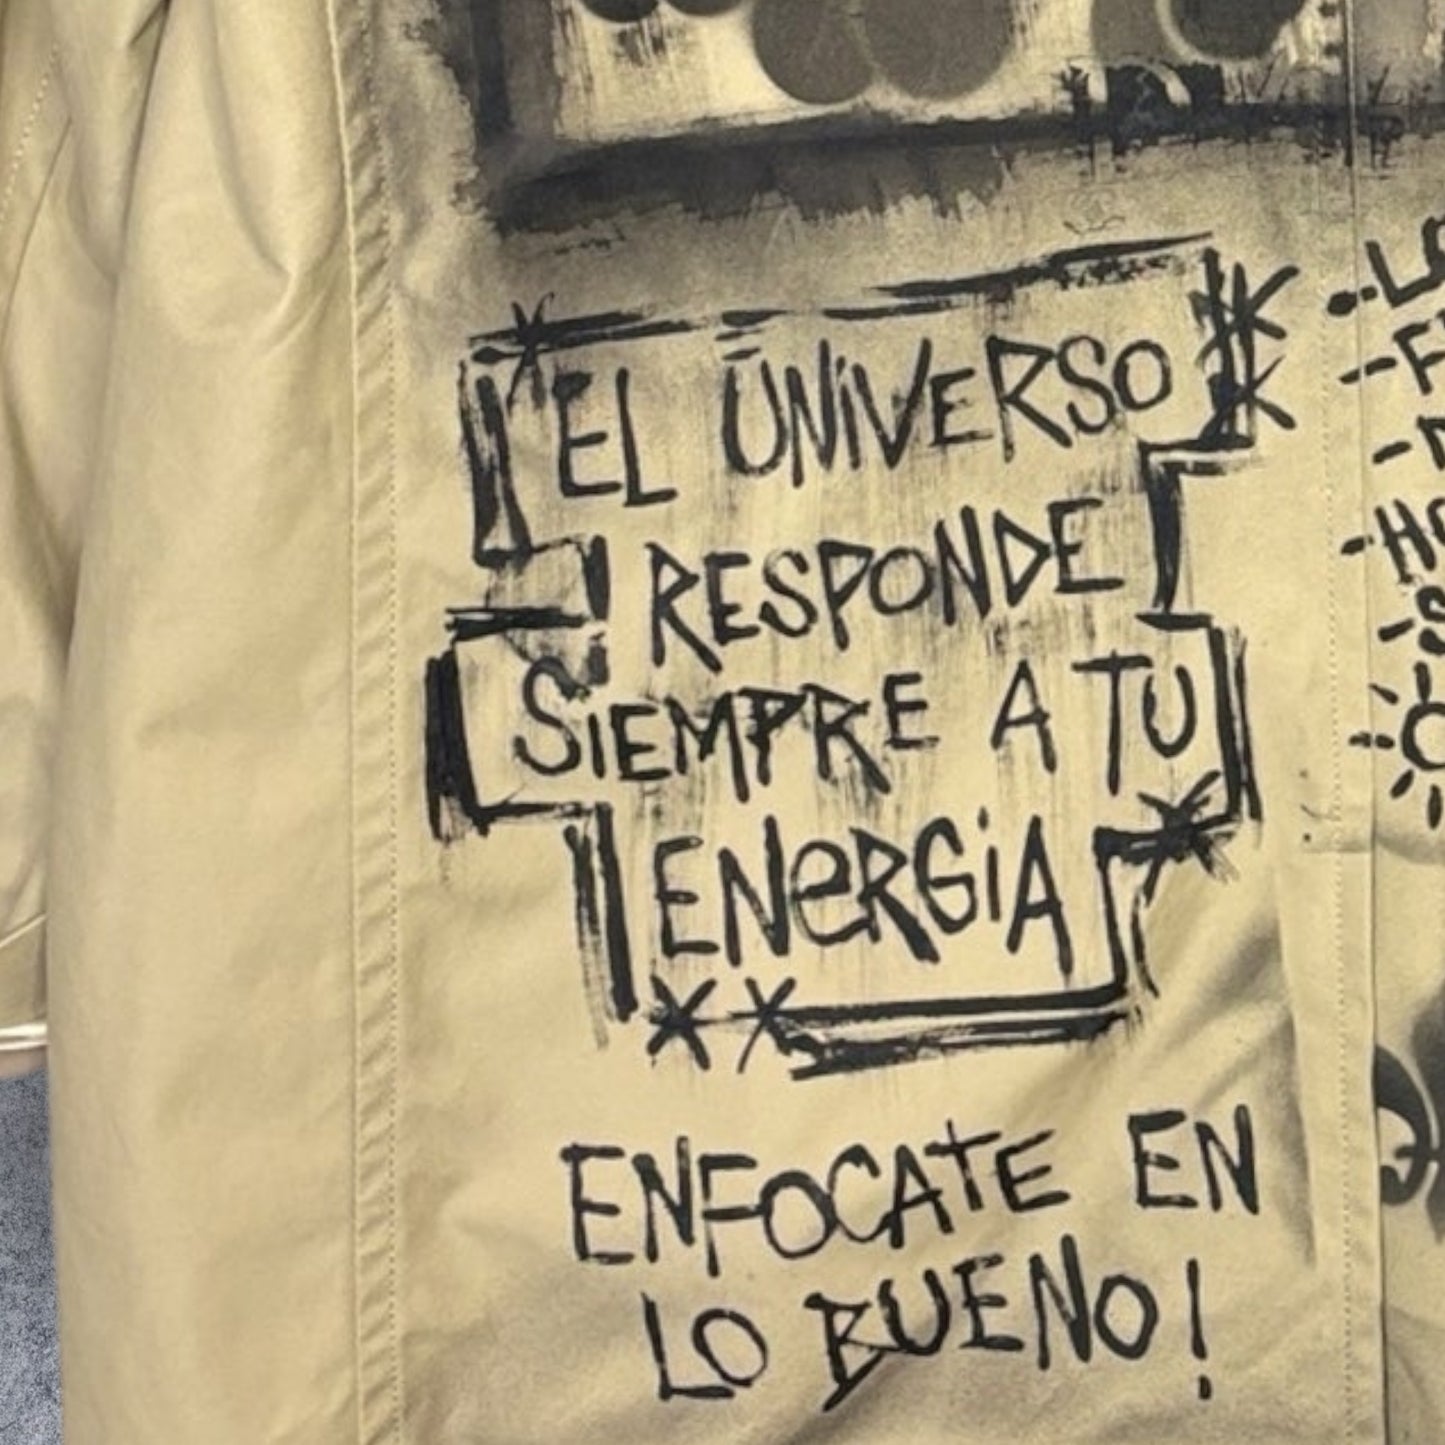 EL UNiVERSO
RESPONDE
SiEMPRE A TU
ENeRGiA
ENFOCATE EN
LO BUENO!